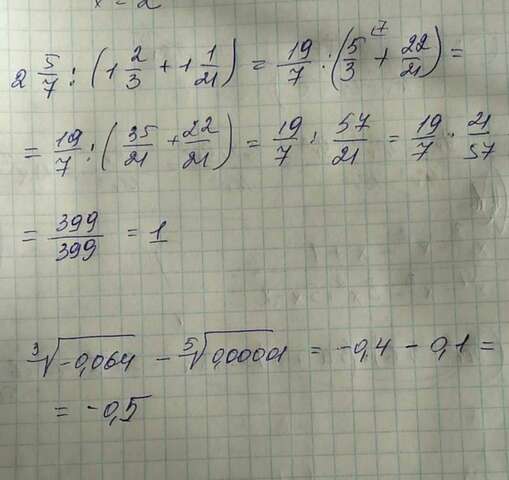 x = 2
2 5/7 : (1 2/3 + 1 1/21) = 19/7 : (5/3 (7 + 22/21) =
= 19/7 : (35/21 + 22/21) = 19/7 : 57/21 = 19/7 · 21/57
= 399/399 = 1
∛-0,064 - ⁵√0,00001 = -0,4 - 0,1 =
= -0,5